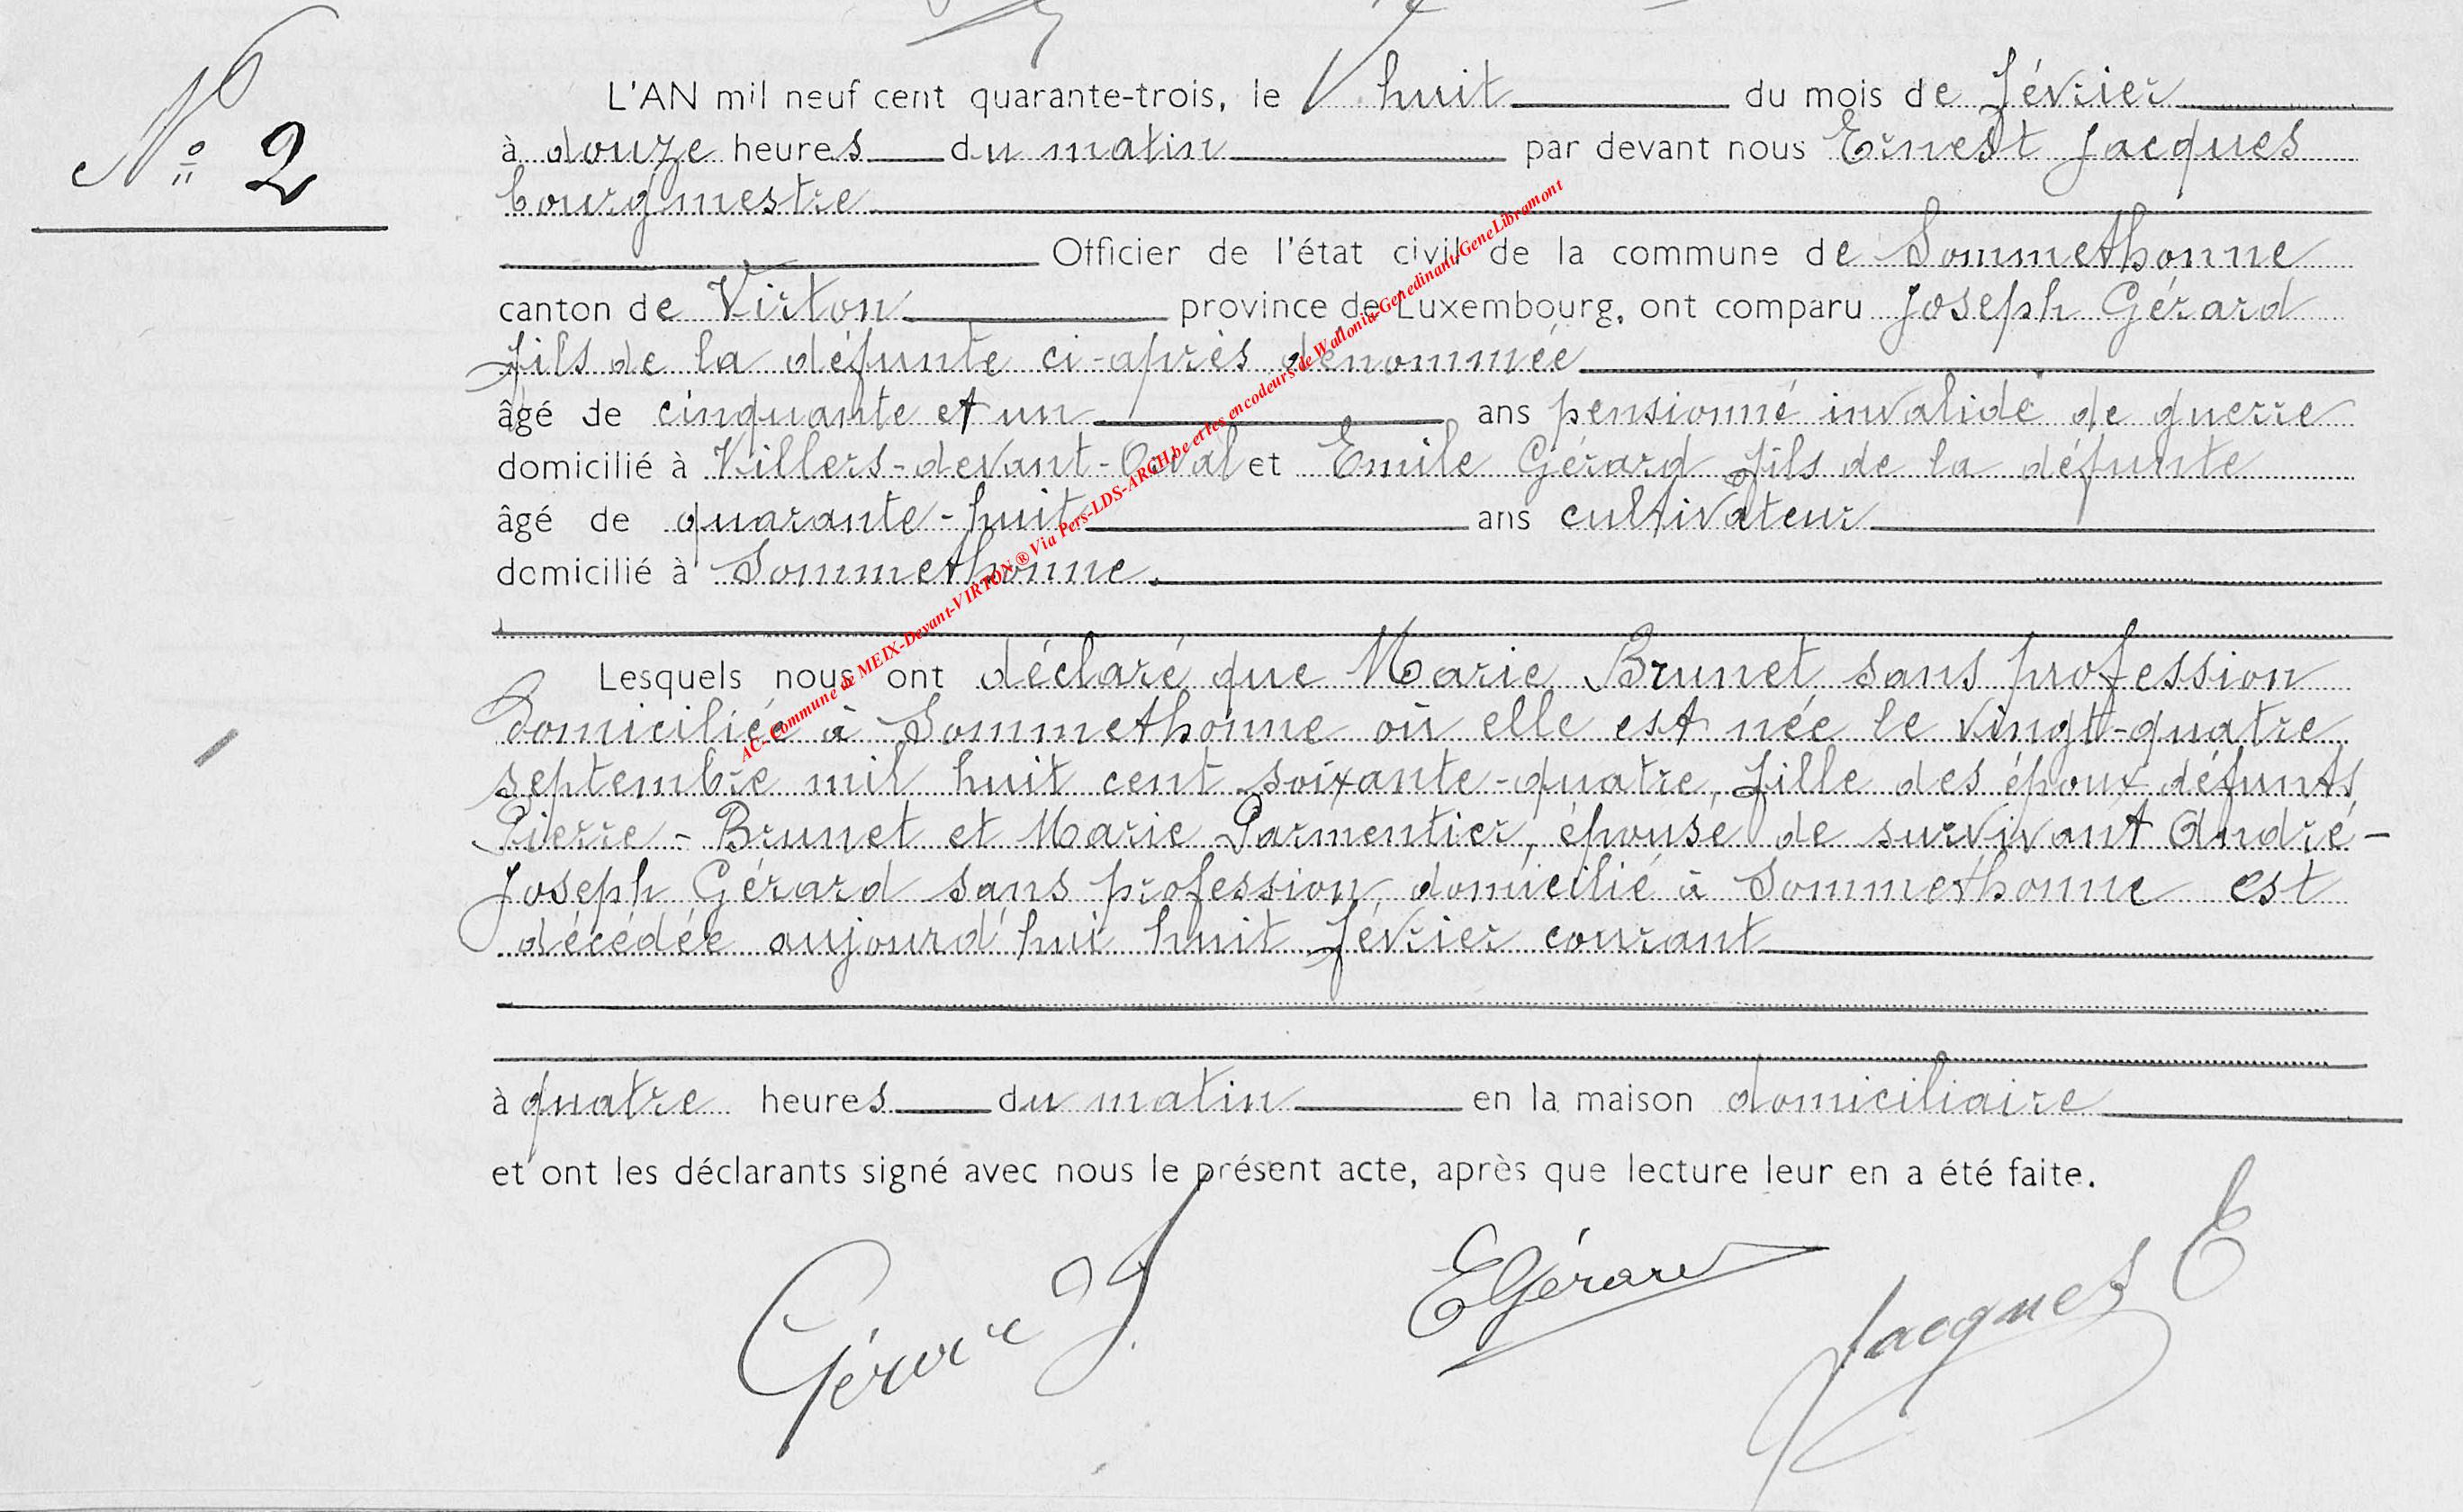 N° 2
L'AN mil neuf cent quarante-trois, le huit du mois de février
à douze heures du matin par devant nous Ernest Jacques
bourgmestre
Officier de l'état civil de la commune de Sommethonne
canton de Virton province de Luxembourg, ont comparu Joseph Gérard
fils de la défunte ci-après dénommée
âgé de cinquante et un ans pensionné invalide de guerre
domicilié à Villers-devant-Orval et Emile Gérard fils de la défunte
âgé de quarante-huit ans cultivateur
domicilié à Sommethonne.
Lesquels nous ont déclaré que Marie Brunet sans profession
domiciliée à Sommethonne où elle est née le vingt-quatre
septembre mil huit cent soixante-quatre, fille des époux défunts
Pierre-Brunet et Marie Parmentier, épouse de survivant André-
Joseph Gérard sans profession domicilié à Sommethonne est
décédée aujourd'hui huit février courant
à quatre heures du matin en la maison domiciliaire
et ont les déclarants signé avec nous le présent acte, après que lecture leur en a été faite.
Gérard J. EGérard Jacques E
AC-Commune de MEIX-Devant-VIRTON ® Via Pers-LDS-ARCH.be et les encodeurs de Wallonia-Genedinant-GeneLibramont